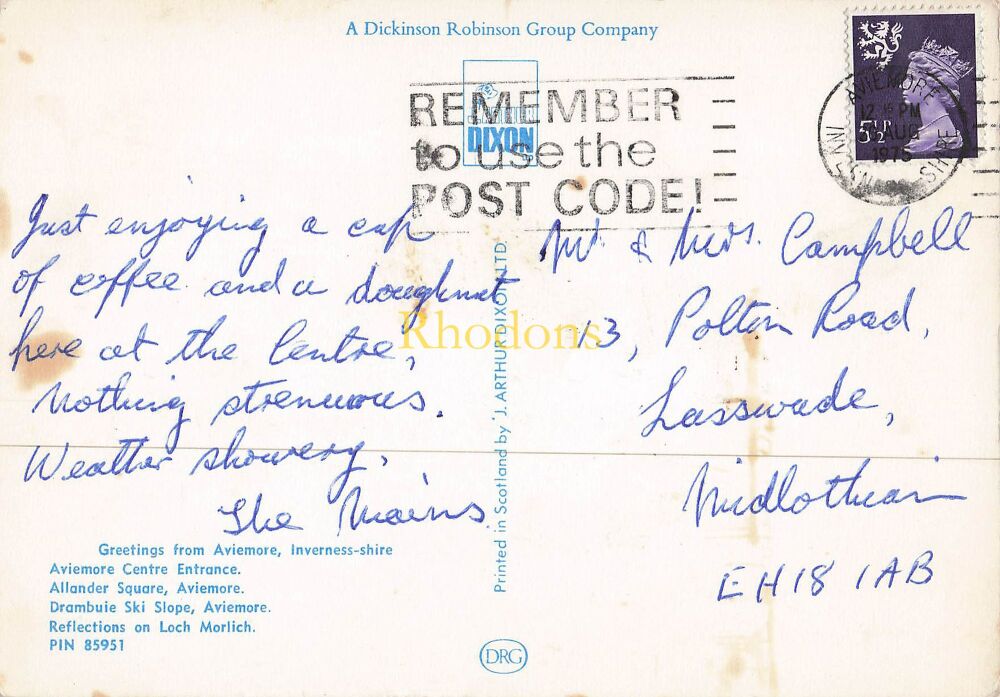 A Dickinson Robinson Group Company
DIXON
REMEMBER
to use the
POST CODE!
AVIEMORE
12 15 PM
AUG
1975
INVERNESS-SHIRE
5½P
Just enjoying a cup
of coffee and a doughnut
here at the Centre,
Nothing strenuous.
Weather showery,
The Mains.
Mr. & Mrs. Campbell
13, Polton Road,
Lasswade,
Midlothian
EH18 1AB
Rhodons
Printed in Scotland by J. ARTHUR DIXON LTD.
Greetings from Aviemore, Inverness-shire
Aviemore Centre Entrance.
Allander Square, Aviemore.
Drambuie Ski Slope, Aviemore.
Reflections on Loch Morlich.
PIN 85951
DRG